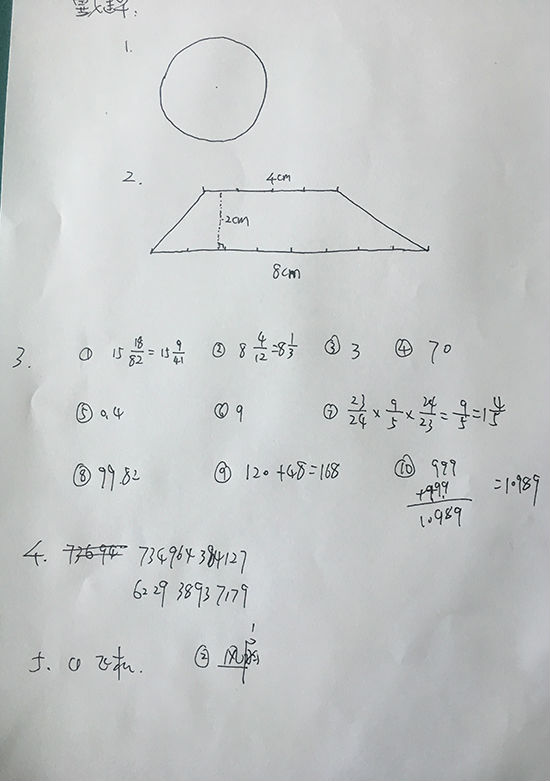 1.
2.
4cm
2cm
8cm
3. ① 15 18/82 = 15 9/41 ② 8 4/12 = 8 1/3 ③ 3 ④ 70
⑤ 0.4 ⑥ 9 ⑦ 23/24 × 9/5 × 24/23 = 9/5 = 1 4/5
⑧ 99.82 ⑨ 120 + 48 = 168 ⑩ 999
+999
10989
= 10989
4. 73694 734964384127
6229 38937179
5. ① 飞机. ②